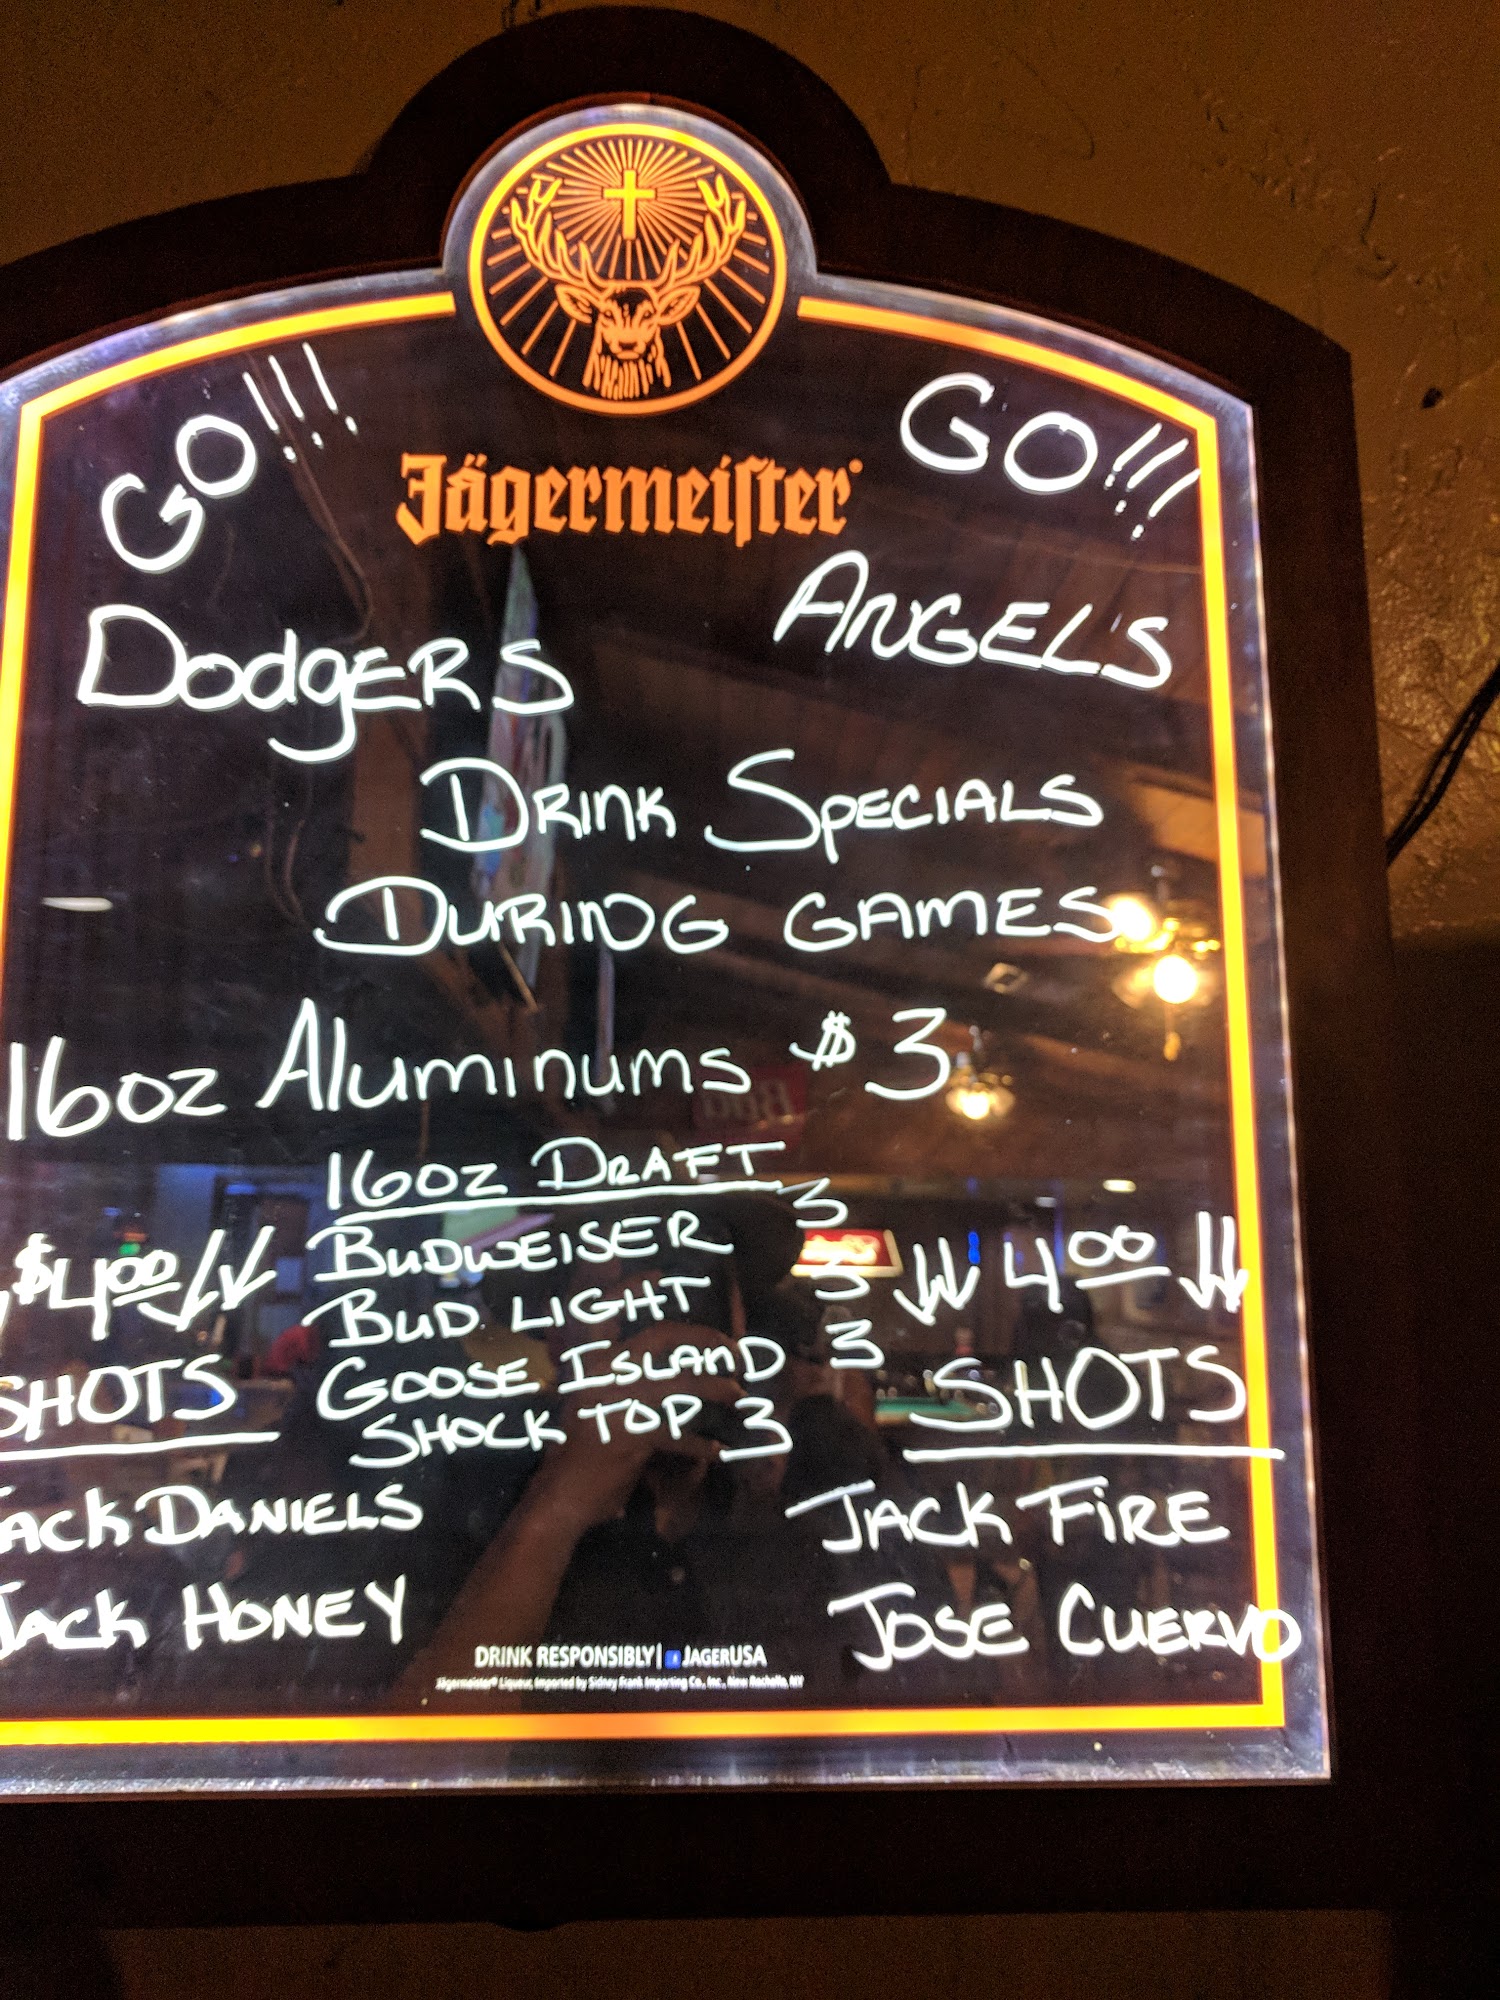 GO!!! GO!!!
Jägermeiſter
DodgERS ANGELS
DRINK SPECIALS
DURING GAMES
16oz Aluminums $3
16oz DRAFT
BUDWEISER 3
BUD LIGHT 3
GOOSE ISLAND 3
SHOCK TOP 3
$4.00
SHOTS
JACK DANIELS
JACK HONEY
4.00
SHOTS
JACK FIRE
JOSE CUERVO
DRINK RESPONSIBLY | JAGERUSA
Jägermeister® Liqueur, Imported by Sidney Frank Importing Co., Inc., New Rochelle, NY